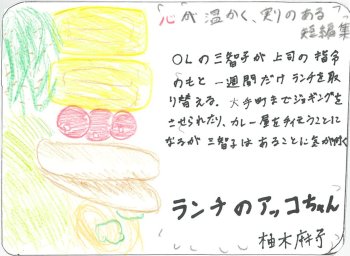 「心が温かく、実りのある
短編集」
OLの三智子が上司の指令
のもと一週間だけランチを取
り替える。大手町までジョギングを
させられたり、カレー屋をチェることに
なるが三智子はあることに気が付く
ランチのアッコちゃん
柚木麻子